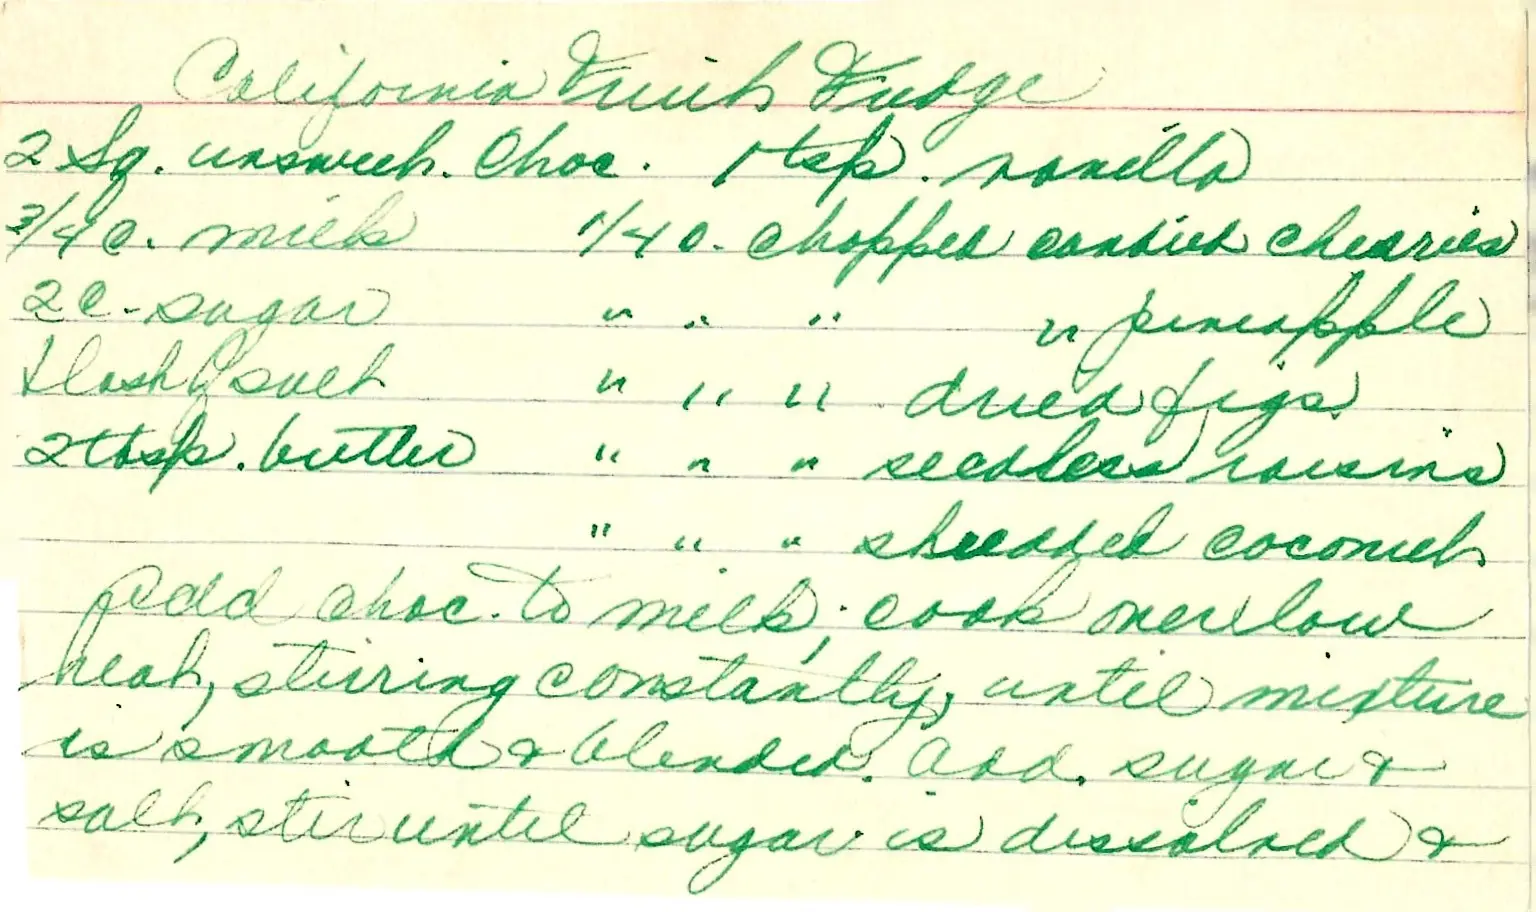 California Fruit Fudge
2 Sq. unsweet. Choc. 1 tsp. vanilla
3/4 c. milk 1/4 c. chopped candied cherries
2 c. sugar " " " " pineapple
dash of salt " " " dried figs
2 tbsp. butter " " " seedless raisins
" " " shredded coconut
Add choc. to milk; cook over low
heat, stirring constantly, until mixture
is smooth & blended. Add sugar &
salt, stir until sugar is dissolved &